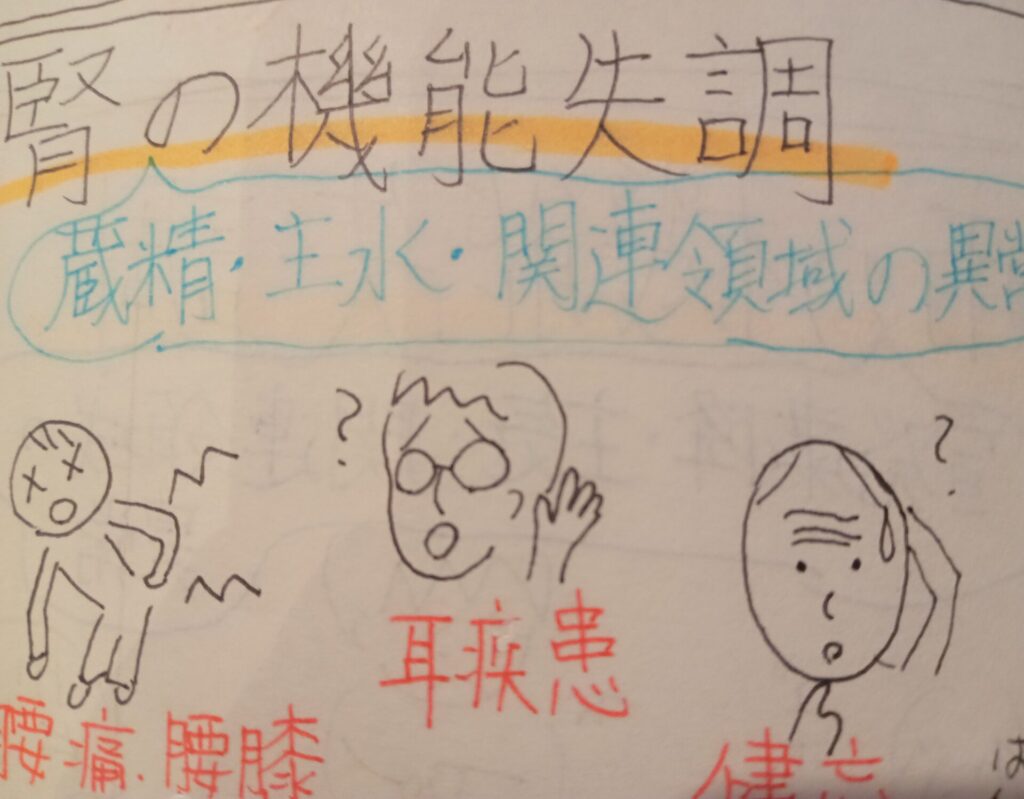 腎の機能失調
蔵精・主水・関連領域の異常
?
?
耳疾患
腰痛.腰膝
健忘
は